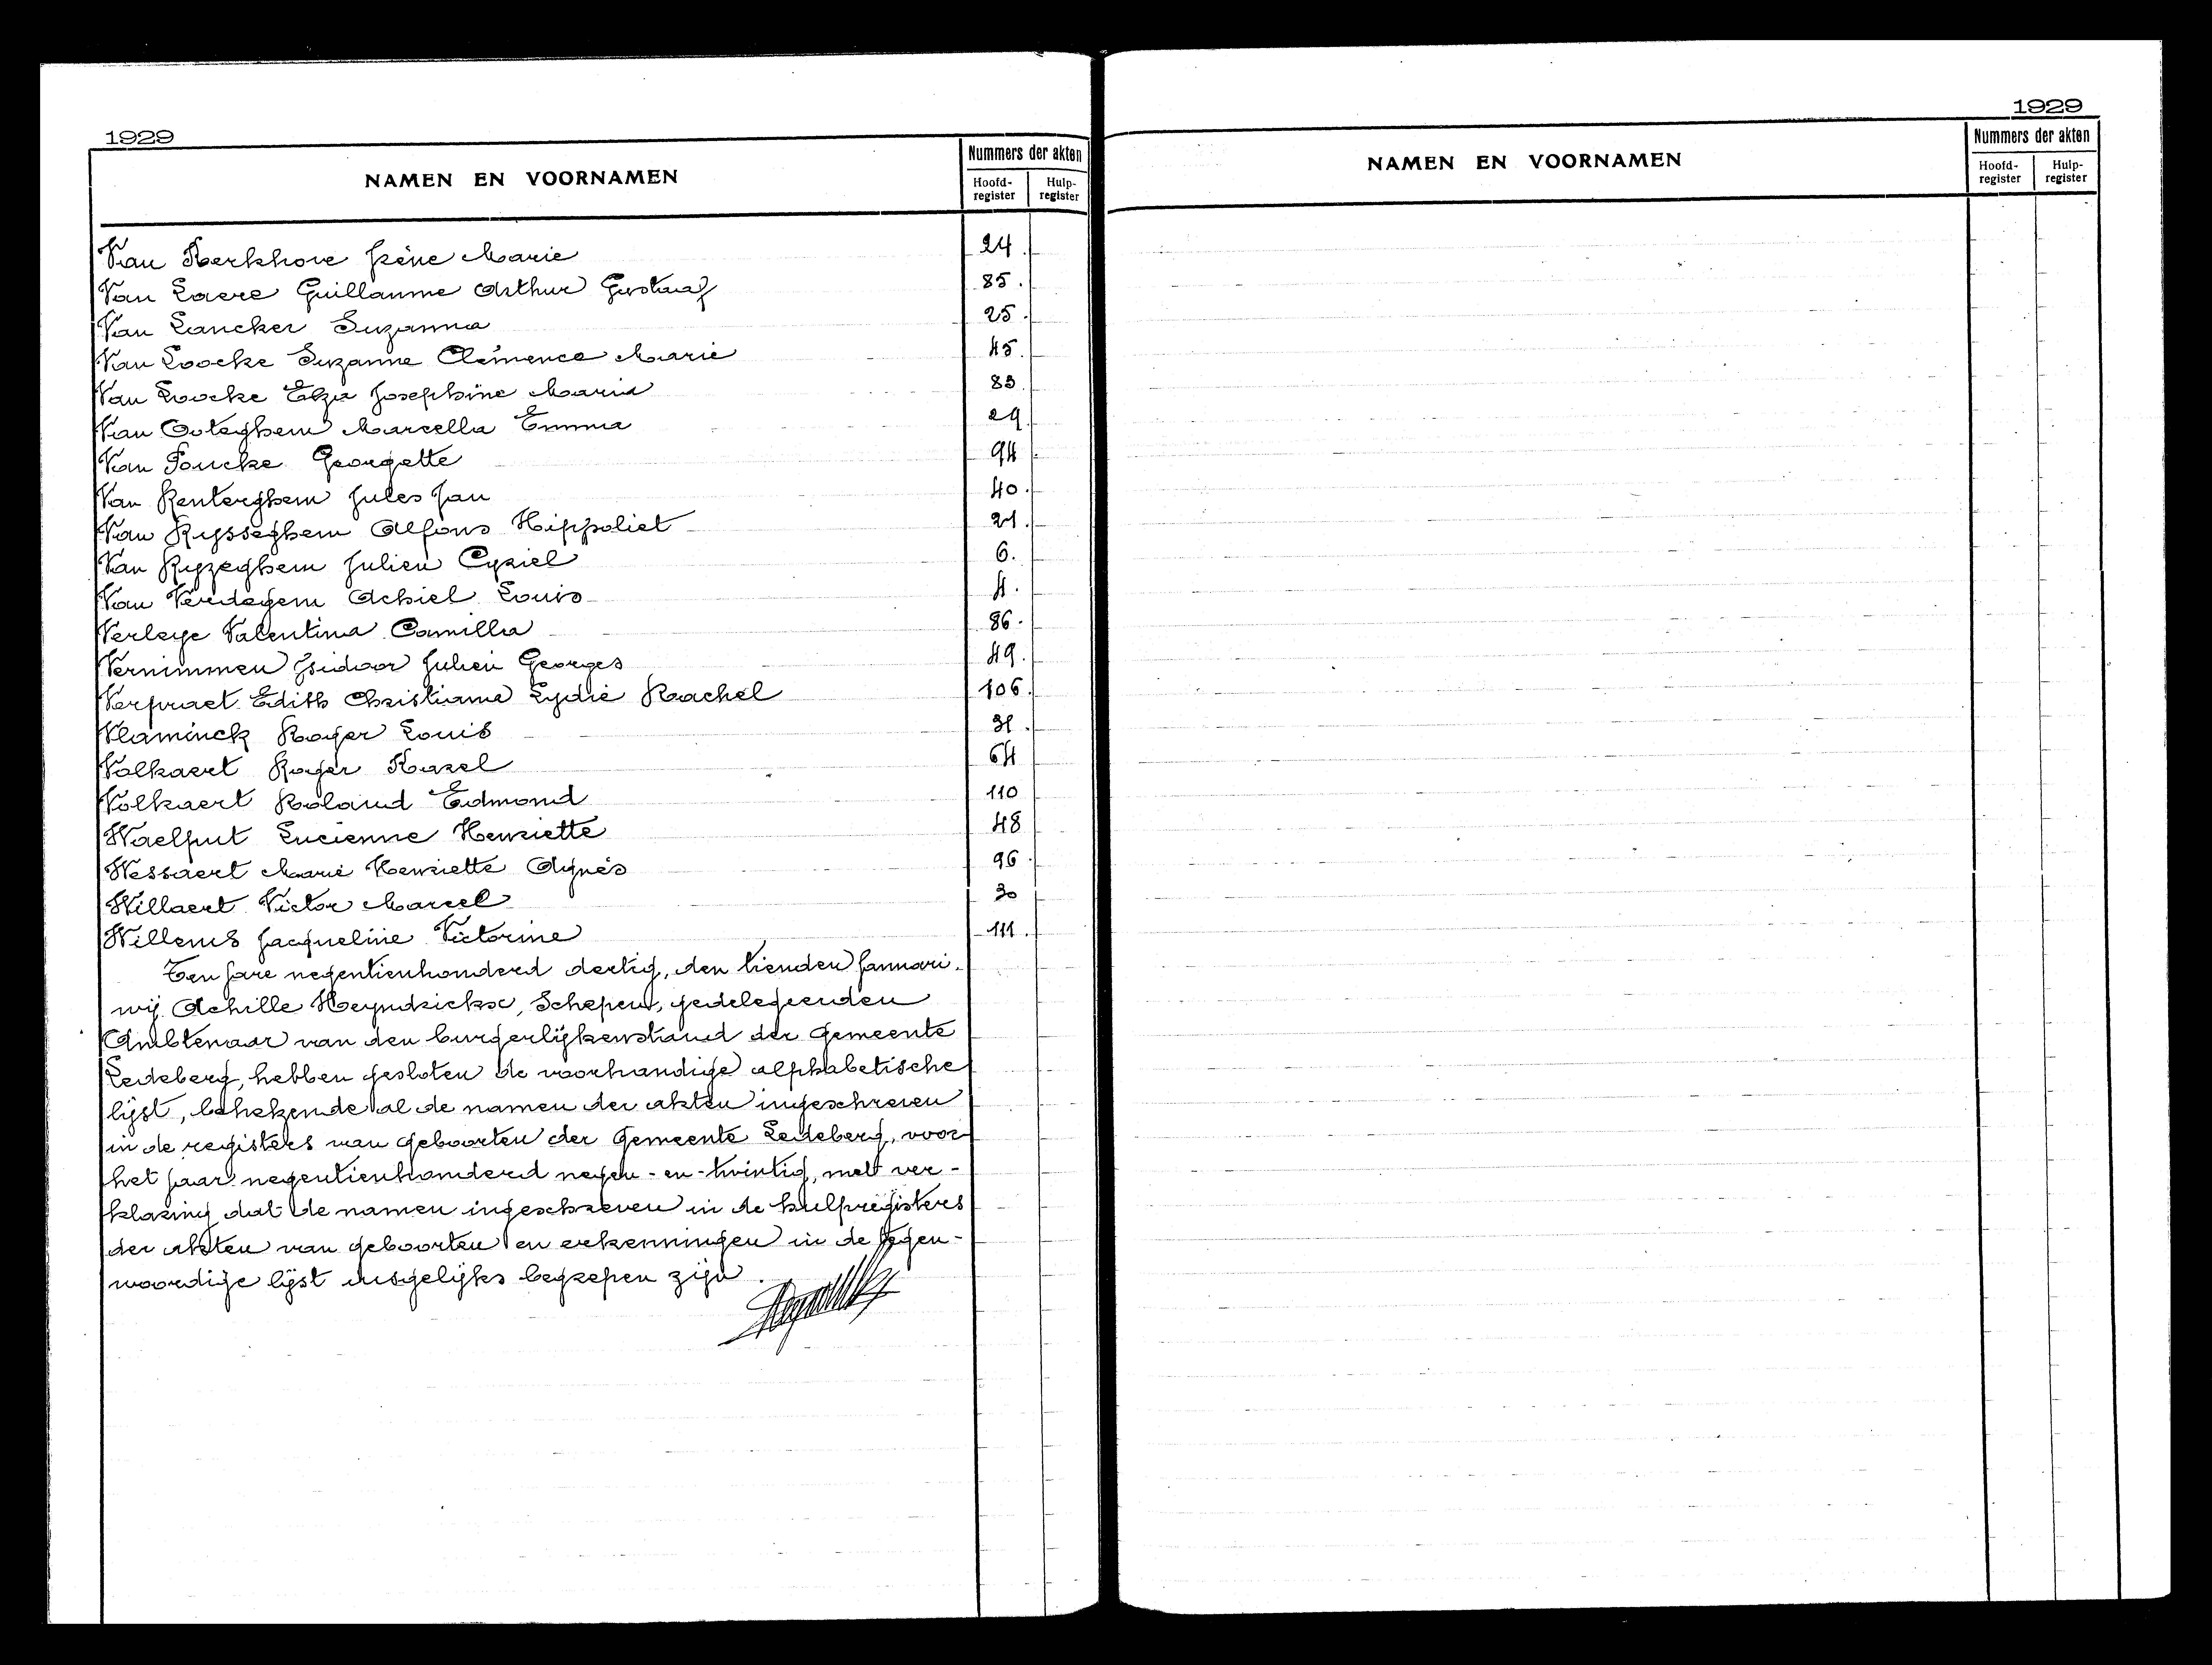 1929
NAMEN EN VOORNAMEN
Nummers der akten
Hoofd-register
Hulp-register
Van Kerkhove Irène Marie 24.
Van Laere Guillaume Arthur Gustaaf 85.
Van Lancker Suzanna 25.
Van Loocke Suzanne Clémence Marie 45.
Van Loocke Elza Josephine Maria 83.
Van Ooteghem Marcella Emma 29
Van Poucke Georgette 94
Van Renterghem Jules Jan 40.
Van Rysseghem Alfons Hippoliet 21.
Van Ryzeghem Julien Cyriel 6.
Van Verdegem Achiel Louis 4.
Verleye Valentina Camilla 86.
Vernimmen Isidoor Julien Georges 49.
Verpraet Edith Christiane Lydie Rachel 106.
Vlaminck Roger Louis 31.
Volkaert Roger Karel 64
Volkaert Roland Edmond 110
Waelput Lucienne Henriette 48
Wessaert Marie Henriette Agnès 96.
Willaert Victor Marcel 30
Willems Jacqueline Victorine 111.
Ten jare negentienhonderd dertig, den tienden Januari.
wij Achille Heyndrickx, Schepen, gedelegeerden
Ambtenaar van den burgerlijkenstand der Gemeente
Ledeberg, hebben gesloten de voorhandige alphabetische
lijst, behelzende al de namen der akten ingeschreven
in de registers van geboorten der Gemeente Ledeberg, voor
het jaar negentienhonderd negen-en-twintig, met ver-
klaring dat de namen ingeschreven in de hulpregisters
der akten van geboorten en erkenningen in de tegen-
woordige lijst insgelijks begrepen zijn.
1929
NAMEN EN VOORNAMEN
Nummers der akten
Hoofd-register
Hulp-register